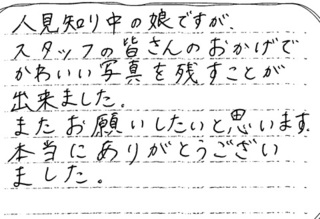 人見知り中の娘ですが、
スタッフの皆さんのおかげで
かわいい写真を残すことが
出来ました。
またお願いしたいと思います。
本当にありがとうござい
ました。